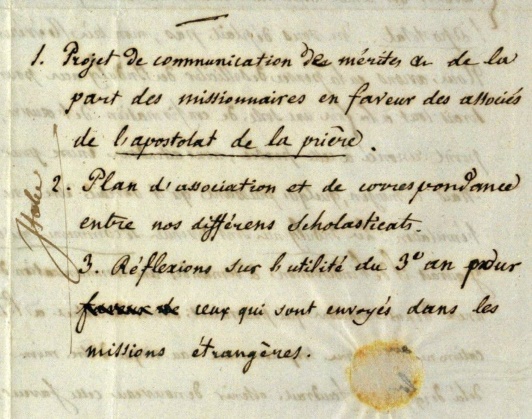 1. Projet de communication des mérites &c de la
part des missionnaires en faveur des associés
de l'apostolat de la prière.
2. Plan d'association et de correspondance
entre nos différens scholasticats.
3. Réflexions sur l'utilité du 3e an pour
ceux qui sont envoyés dans les
missions étrangères.